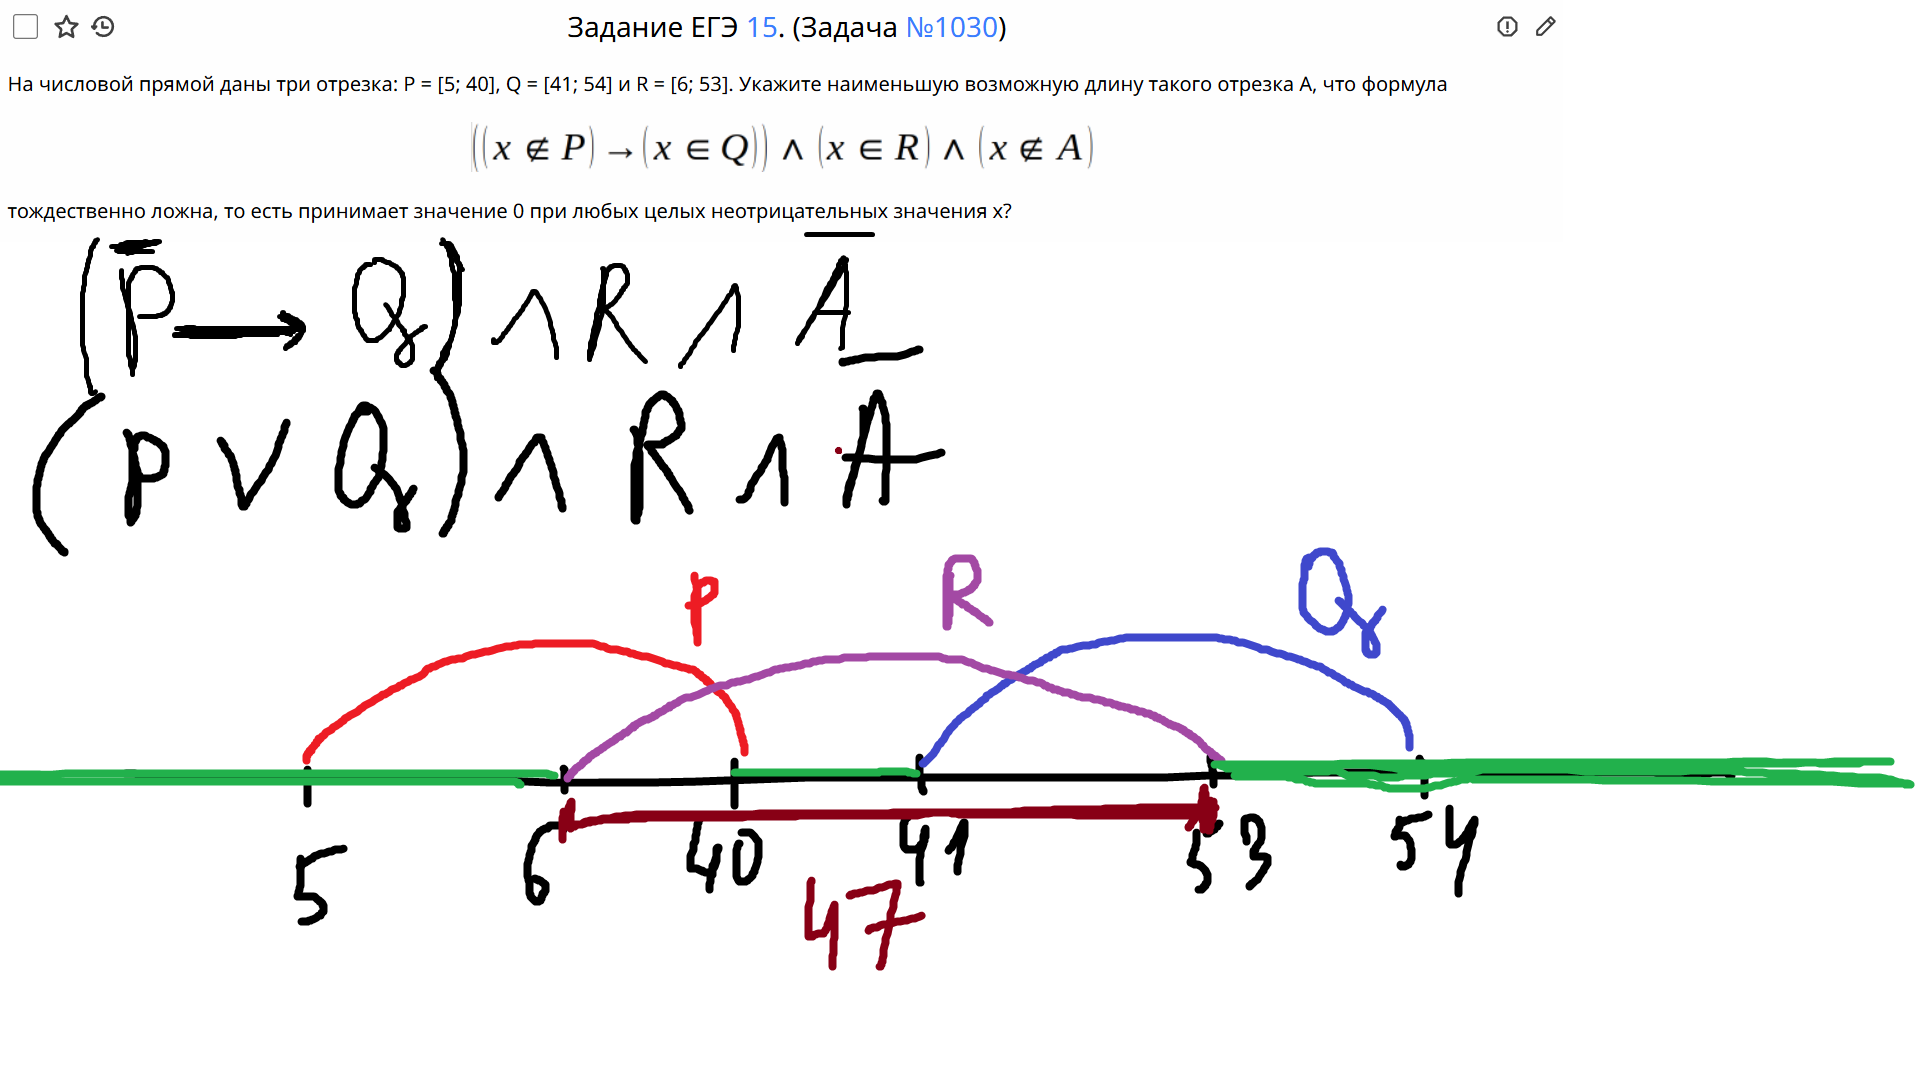 Задание ЕГЭ 15. (Задача №1030)
На числовой прямой даны три отрезка: P = [5; 40], Q = [41; 54] и R = [6; 53]. Укажите наименьшую возможную длину такого отрезка A, что формула
((x ∉ P) → (x ∈ Q)) ∧ (x ∈ R) ∧ (x ∉ A)
тождественно ложна, то есть принимает значение 0 при любых целых неотрицательных значения x?
(P̿ → Q) ∧ R ∧ A̅
(P ∨ Q) ∧ R ∧ A̅
P R Q
5 6 40 41 53 54
47